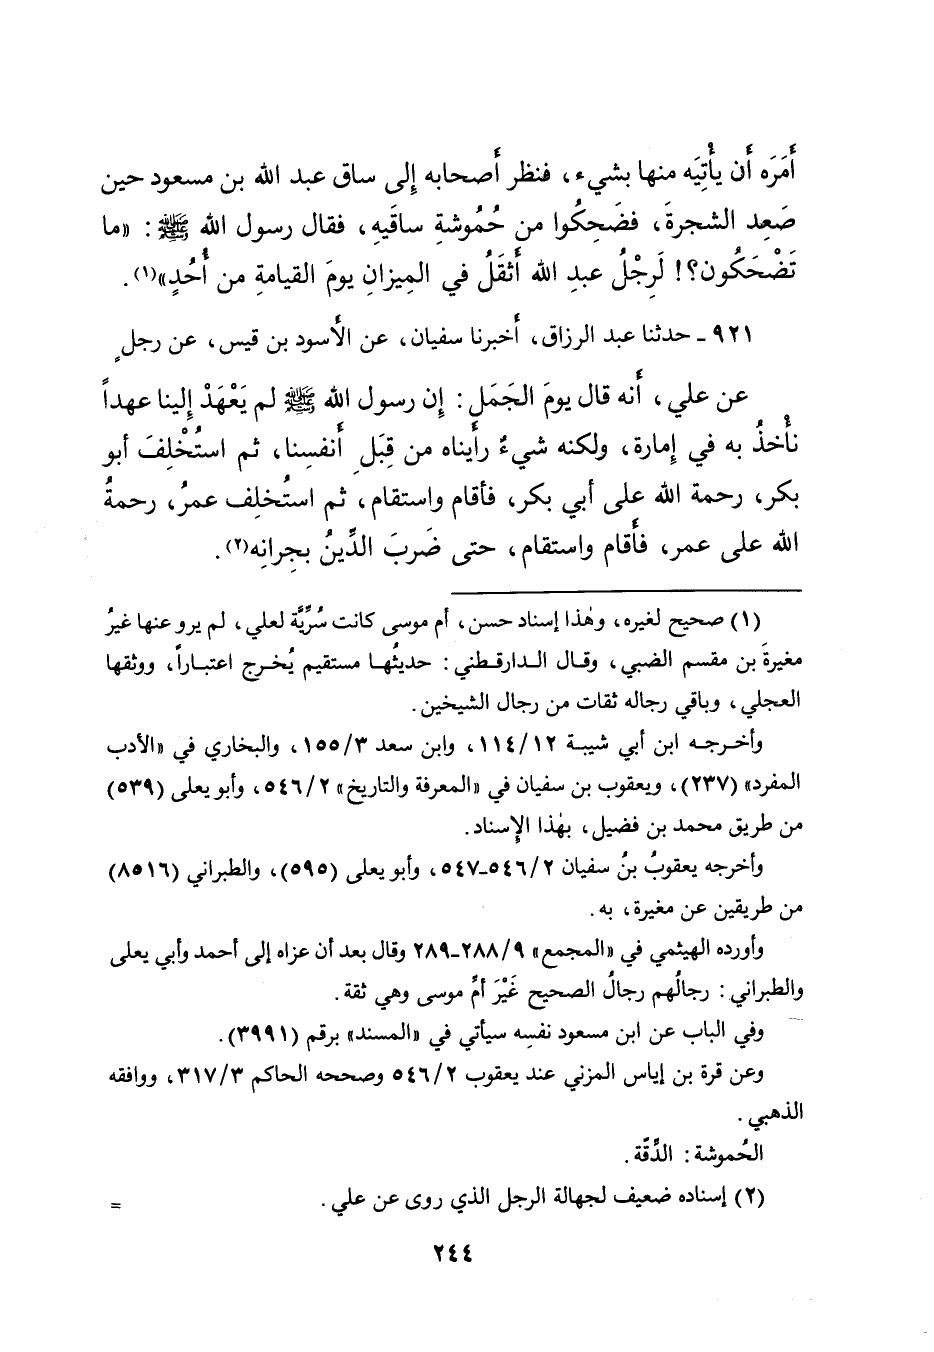 أَمَرَه أَن يأْتِيَه منها بشيء، فنظر أَصحابه إِلى ساق عبد الله بن مسعود حين
صَعِد الشجرةَ، فضَحِكُوا من حُمُوشةِ ساقَيهِ، فقال رسول الله ﷺ: «ما
تَضْحَكُون؟! لَرِجْلُ عبدِ الله أَثقَلُ في المِيزانِ يومَ القيامةِ من أُحُدٍ»(١).
٩٢١ ـ حدثنا عبد الرزاق، أَخبرنا سفيان، عن الأَسود بن قيس، عن رجلٍ
عن علي، أَنه قال يومَ الجَمَل: إِن رسول الله ﷺ لم يَعْهَدْ إِلينا عهداً
نأْخذُ به في إِمارة، ولكنه شيءٌ رأَيناه من قِبَلِ أَنفسِنا، ثم استُخْلِفَ أبو
بكر، رحمة الله على أبي بكر، فأقام واستقام، ثم استُخلِف عمرُ، رحمةُ
الله على عمر، فأَقام واستقام، حتى ضَربَ الدِّينُ بجِرانِه(٢).
(١) صحيح لغيره، وهٰذا إسناد حسن، أم موسى كانت سُرِّيَّة لعلي، لم يرو عنها غيرُ
مغيرةَ بن مقسم الضبي، وقال الدارقطني: حديثُها مستقيم يُخرج اعتباراً، ووثقها
العجلي، وباقي رجاله ثقات من رجال الشيخين.
وأخرجه ابن أبي شيبة ١١٤/١٢، وابن سعد ١٥٥/٣، والبخاري في «الأدب
المفرد» (٢٣٧)، ويعقوب بن سفيان في «المعرفة والتاريخ» ٥٤٦/٢، وأبو يعلى (٥٣٩)
من طريق محمد بن فضيل، بهٰذا الإسناد.
وأخرجه يعقوبُ بنُ سفيان ٥٤٦/٢ـ٥٤٧، وأبو يعلى (٥٩٥)، والطبراني (٨٥١٦)
من طريقين عن مغيرة، به.
وأورده الهيثمي في «المجمع» ٢٨٨/٩ـ٢٨٩ وقال بعد أن عزاه إلى أحمد وأبي يعلى
والطبراني: رجالُهم رجالُ الصحيح غَيْرَ أمِّ موسى وهي ثقة.
وفي الباب عن ابن مسعود نفسِه سيأتي في «المسند» برقم (٣٩٩١).
وعن قرة بن إياس المزني عند يعقوب ٥٤٦/٢ وصححه الحاكم ٣١٧/٣، ووافقه
الذهبي.
الحُموشة: الدِّقَّة.
(٢) إسناده ضعيف لجهالة الرجل الذي روى عن علي. =
٢٤٤